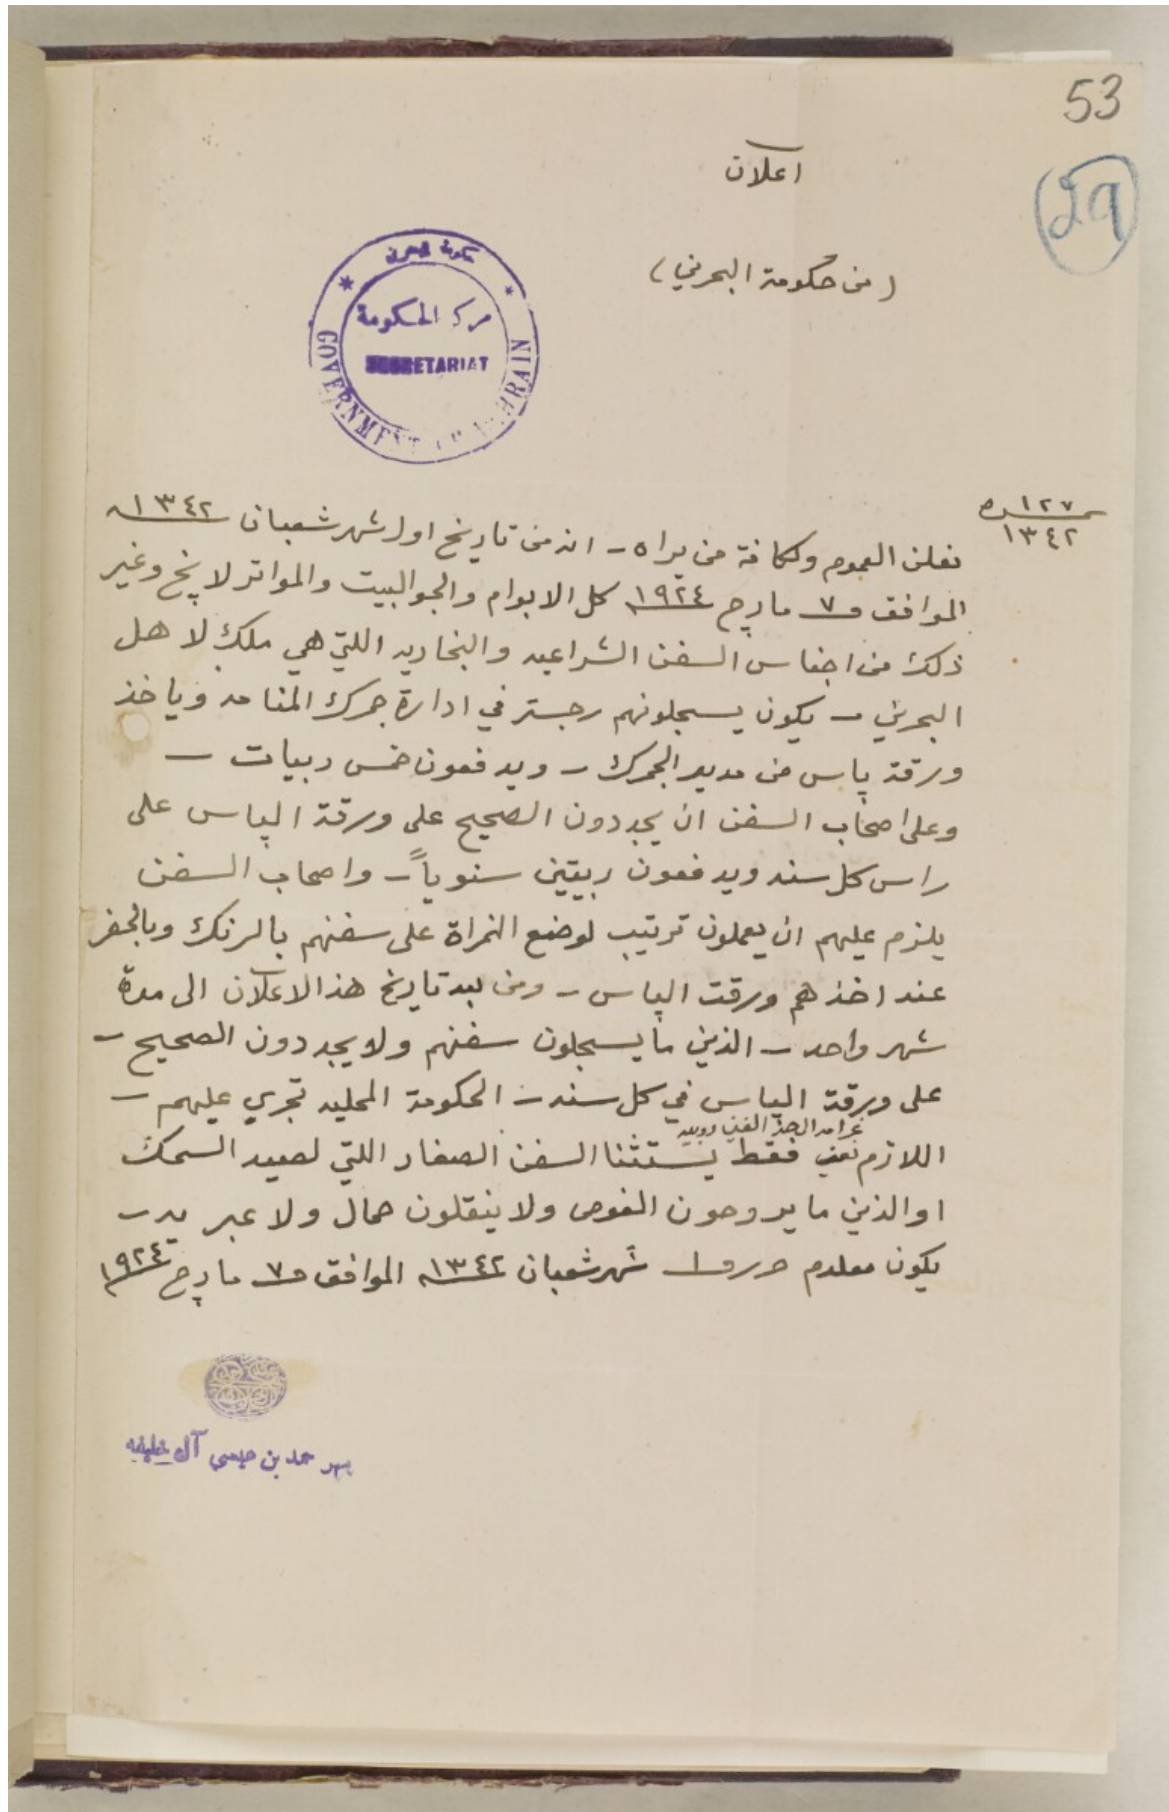 53
29
اعلان
(من حكومة البحرين)
حكومة البحرين
مركز الحكومة
SECRETARIAT
GOVERNMENT OF BAHRAIN
١٢٧
١٣٤٢
نعلن العموم ولكافة من يراه - انه من تاريخ اول شهر شعبان ١٣٤٢
الموافق ٧ مارچ ١٩٢٤ كل الابوام والجوالبيت والمواتر لانچ وغير
ذلك من اجناس السفن الشراعيه والبخاريه اللتي هي ملك لاهل
البحرين - يكون يسجلونهم رجستر في ادارة جمرك المنامه وياخذ
ورقة پاس من مدير الجمرك - ويدفعون خمس ربيات -
وعلى اصحاب السفن ان يجددون الصحيح على ورقة الپاس على
راس كل سنه ويدفعون ربيتين سنوياً - واصحاب السفن
يلزم عليهم ان يعملون ترتيب لوضع النمراة على سفنهم بالرنك وبالحفر
عند اخذهم ورقت الپاس - ومن بعد تاريخ هذا الاعلان الى مدة
شهر واحد - الذين ما يسجلون سفنهم ولا يجددون الصحيح -
على ورقة الپاس في كل سنه - الحكومة المحليه تجري عليهم -
اللازم فقط يستثنا السفن الصغار اللتي لصيد السمك
او الذين ما يروحون الغوص ولا ينقلون حمال ولا عبريه -
يكون معلوم حرر ١ شهر شعبان ١٣٤٢ الموافق ٧ مارچ ١٩٢٤
مهر حمد بن عيسى آل خليفه